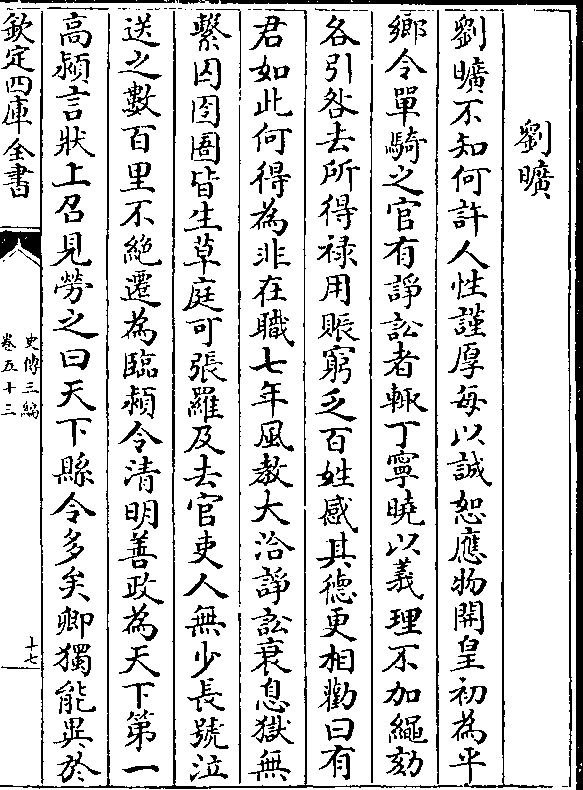 劉曠
劉曠不知何許人性謹厚每以誠恕應物開皇初為平
鄉令單騎之官有諍訟者輒丁寧曉以義理不加繩劾
各引咎去所得祿用賑窮乏百姓感其德更相勸曰有
君如此何得為非在職七年風教大洽諍訟衰息獄無
繫囚囹圄皆生草庭可張羅及去官吏人無少長號泣
送之數百里不絕遷為臨潁令清明善政為天下第一
高熲言狀上召見勞之曰天下縣令多矣卿獨能異於
欽定四庫全書
史傳三編
卷五十三
十七